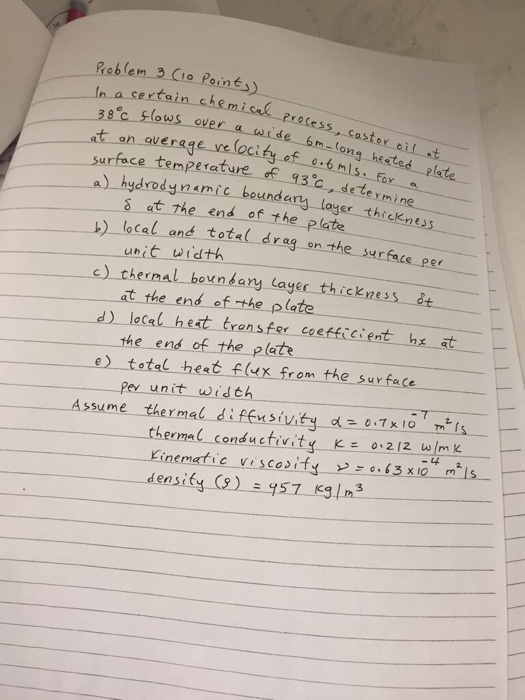 Problem 3 (10 Points)
In a certain chemical process, castor oil at
38°C flows over a wide 6m-long heated plate
at an average velocity of 0.6 m/s. For a
surface temperature of 93°C, determine
a) hydrodynamic boundary layer thickness
δ at the end of the plate
b) local and total drag on the surface per
unit width
c) thermal boundary layer thickness δt
at the end of the plate
d) local heat transfer coefficient hx at
the end of the plate
e) total heat flux from the surface
per unit width
Assume thermal diffusivity α = 0.7x10⁻⁷ m²/s
thermal conductivity K = 0.212 w/mK
Kinematic viscosity ν = 0.63x10⁻⁴ m²/s
density (ρ) = 957 Kg/m³